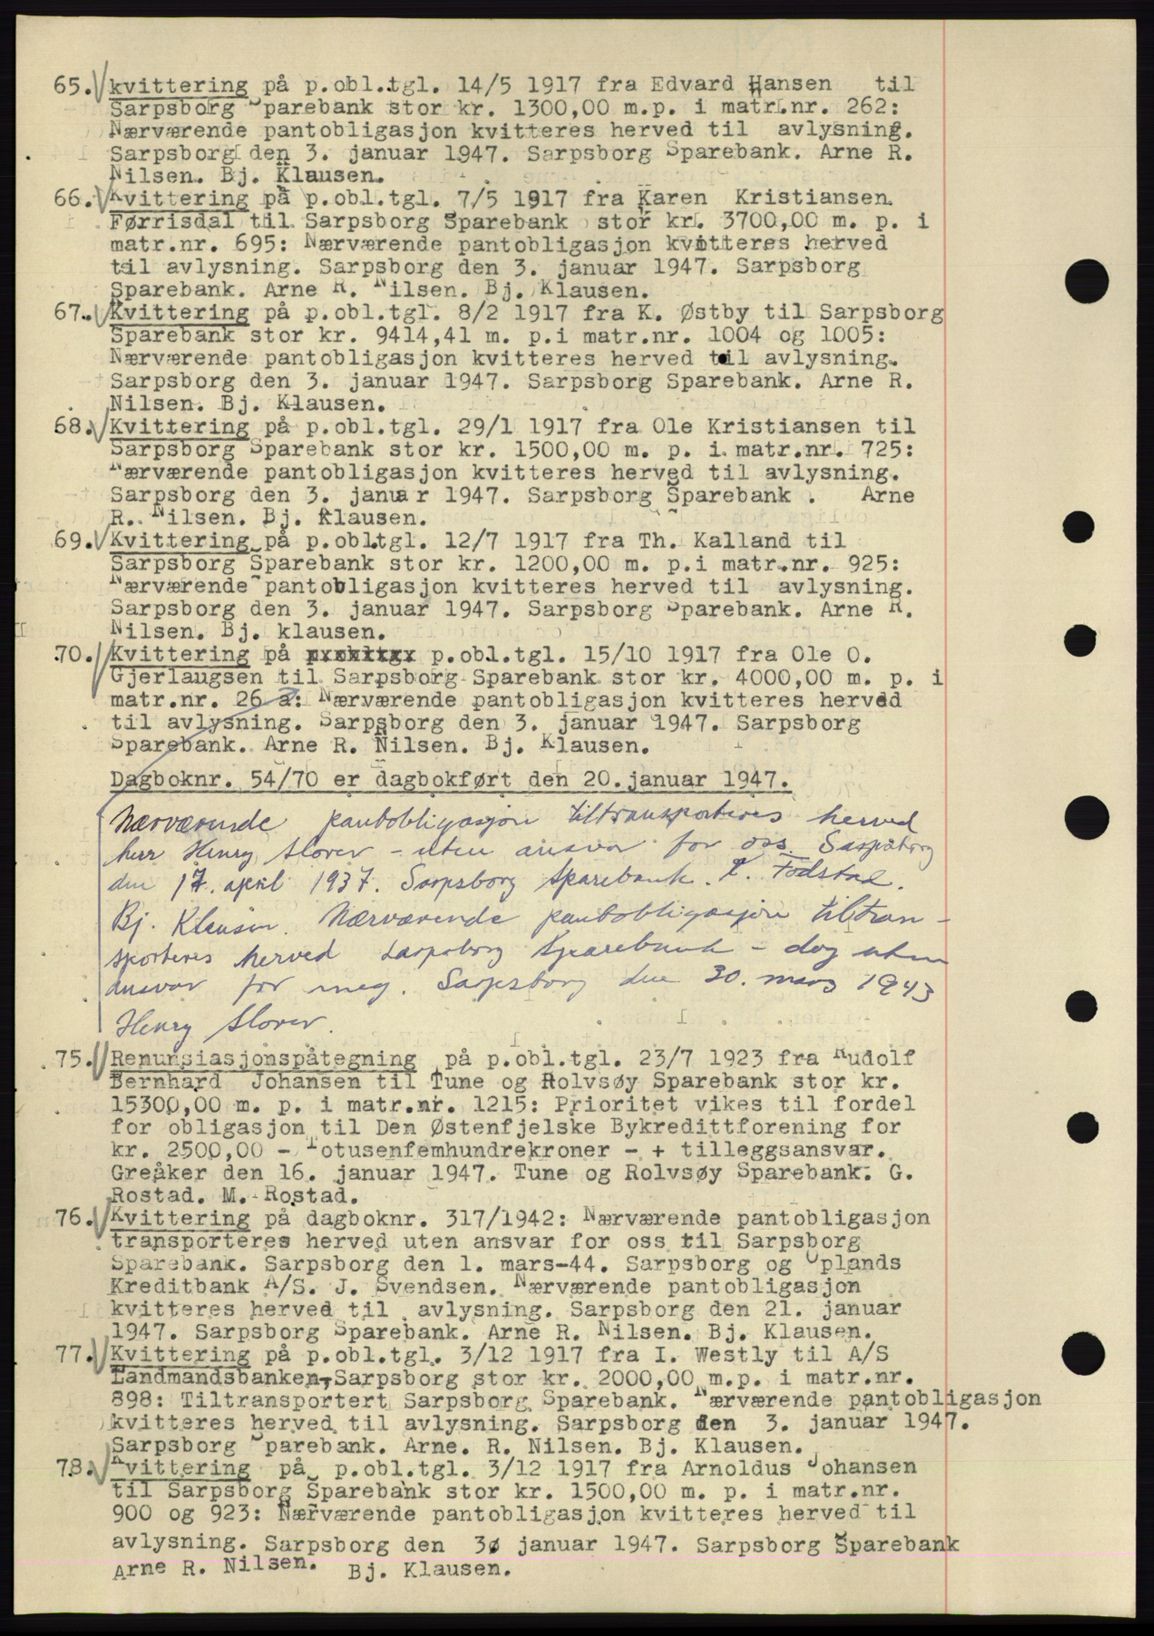 65. kvittering på p.obl.tgl. 14/5 1917 fra Edvard Hansen til
Sarpsborg Sparebank stor kr. 1300,00 m.p. i matr.nr. 262:
Nærværende pantobligasjon kvitteres herved til avlysning.
Sarpsborg den 3. januar 1947. Sarpsborg Sparebank. Arne R.
Nilsen. Bj. Klausen.
66. Kvittering på p.obl.tgl. 7/5 1917 fra Karen Kristiansen
Førrisdal til Sarpsborg Sparebank stor kr. 3700,00 m. p. i
matr.nr. 695: Nærværende pantobligasjon kvitteres herved
til avlysning. Sarpsborg den 3. januar 1947. Sarpsborg
Sparebank. Arne R. Nilsen. Bj. Klausen.
67. Kvittering på p.obl.tgl. 8/2 1917 fra K. Østby til Sarpsborg
Sparebank stor kr. 9414,41 m. p.i matr.nr. 1004 og 1005:
Nærværende pantobligasjon kvitteres herved til avlysning.
Sarpsborg den 3. januar 1947. Sarpsborg Sparebank. Arne R.
Nilsen. Bj. Klausen.
68. Kvittering på p.obl.tgl. 29/1 1917 fra Ole Kristiansen til
Sarpsborg Sparebank stor kr. 1500,00 m. p. i matr.nr. 725:
Nærværende pantobligasjon kvitteres herved til avlysning.
Sarpsborg den 3. januar 1947. Sarpsborg Sparebank . Arne
R. Nilsen. Bj. Klausen.
69. Kvittering på p.obl.tgl. 12/7 1917 fra Th. Kalland til
Sarpsborg Sparebank stor kr. 1200,00 m. p.i matr.nr. 925:
Nærværende pantobligasjon kvitteres herved til avlysning.
Sarpsborg den 3. januar 1947. Sarpsborg Sparebank. Arne R.
Nilsen. Bj. klausen.
70. Kvittering på p.obl.tgl. 15/10 1917 fra Ole O.
Gjerlaugsen til Sarpsborg Sparebank stor kr. 4000,00 m. p. i
matr.nr. 26 a: Nærværende pantobligasjon kvitteres herved
til avlysning. Sarpsborg den 3. januar 1947. Sarpsborg
Sparebank. Arne R. Nilsen. Bj. Klausen.
Dagboknr. 54/70 er dagbokført den 20.januar 1947.
Nærværende pantobligasjon tiltransporteres herved
herr Henry Storer - uten ansvar for oss. Sarpsborg
den 17. april 1937. Sarpsborg Sparebank. Fodstad.
Bj. Klausen. Nærværende pantobligasjon tiltran-
sporteres herved Sarpsborg Sparebank - dog uten
ansvar for meg. Sarpsborg den 30. mars 1943
Henry Storer.
75. Renunsiasjonspåtegning på p.obl.tgl. 23/7 1923 fra Rudolf
Bernhard Johansen til Tune og Rolvsøy Sparebank stor kr.
15300,00 m. p. i matr.nr. 1215: Prioritet vikes til fordel
for obligasjon til Den Østenfjelske Bykredittforening for
kr. 2500,00 - Totusenfemhundrekroner - + tilleggsansvar.
Greåker den 16. januar 1947. Tune og Rolvsøy Sparebank. G.
Rostad. M. Rostad.
76. Kvittering på dagboknr. 317/1942: Nærværende pantobligasjon
transporteres herved uten ansvar for oss til Sarpsborg
Sparebank. Sarpsborg den 1. mars-44. Sarpsborg og Oplands
Kreditbank A/S. J. Svendsen. Nærværende pantobligasjon
kvitteres herved til avlysning. Sarpsborg den 21. januar
1947. Sarpsborg Sparebank. Arne R. Nilsen. Bj. Klausen.
77. Kvittering på p.obl.tgl. 3/12 1917 fra I. Westly til A/S
Landmandsbanken, Sarpsborg stor kr. 2000,00 m.p. i matr.nr.
898: Tiltransportert Sarpsborg Sparebank. Nærværende pantobligasjon
kvitteres herved til avlysning. Sarpsborg den 3. januar 1947.
Sarpsborg Sparebank. Arne. R. Nilsen. Bj. Klausen.
78. Kvittering på p.obl.tgl. 3/12 1917 fra Arnoldus Johansen
til Sarpsborg Sparebank stor kr. 1500,00 m. p. i matr.nr.
900 og 923: Nærværende pantobligasjon kvitteres herved til
avlysning. Sarpsborg den 3. januar 1947. Sarpsborg Sparebank
Arne R. Nilsen. Bj. Klausen.